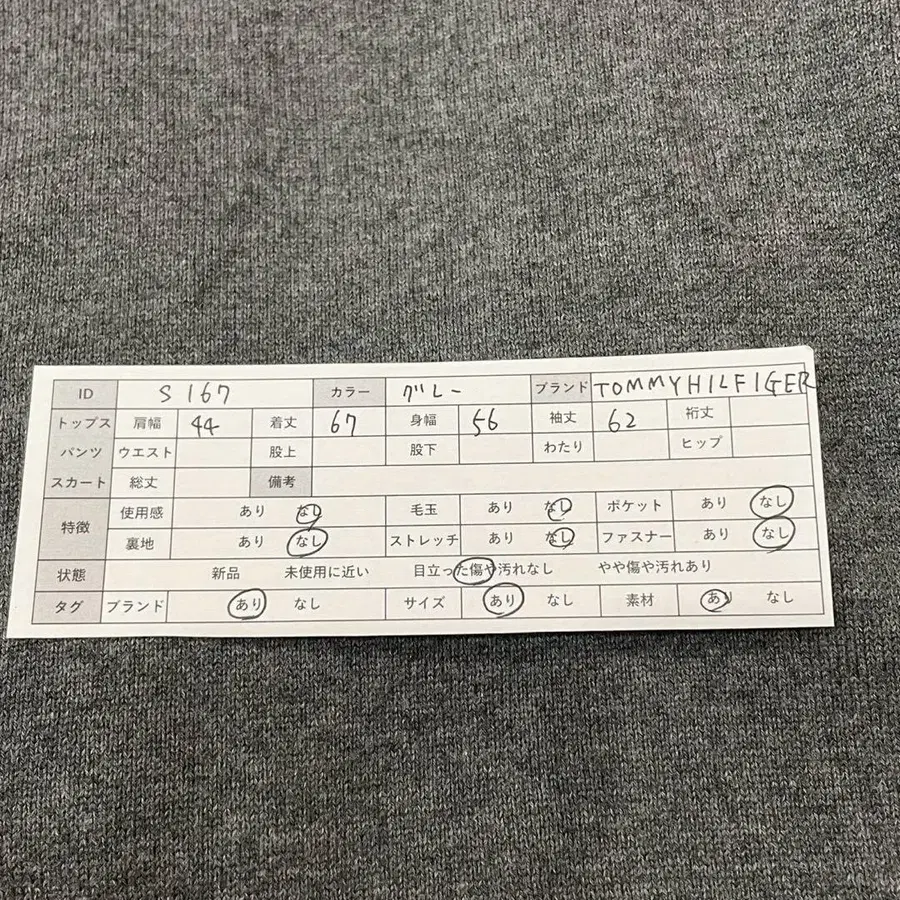 ID S167 カラー グレー ブランド TOMMYHILFIGER
トップス 肩幅 44 着丈 67 身幅 56 袖丈 62 裄丈
パンツ ウエスト 股上 股下 わたり ヒップ
スカート 総丈 備考
特徴 使用感 あり なし 毛玉 あり なし ポケット あり なし
裏地 あり なし ストレッチ あり なし ファスナー あり なし
状態 新品 未使用に近い 目立った傷や汚れなし やや傷や汚れあり
タグ ブランド あり なし サイズ あり なし 素材 あり なし